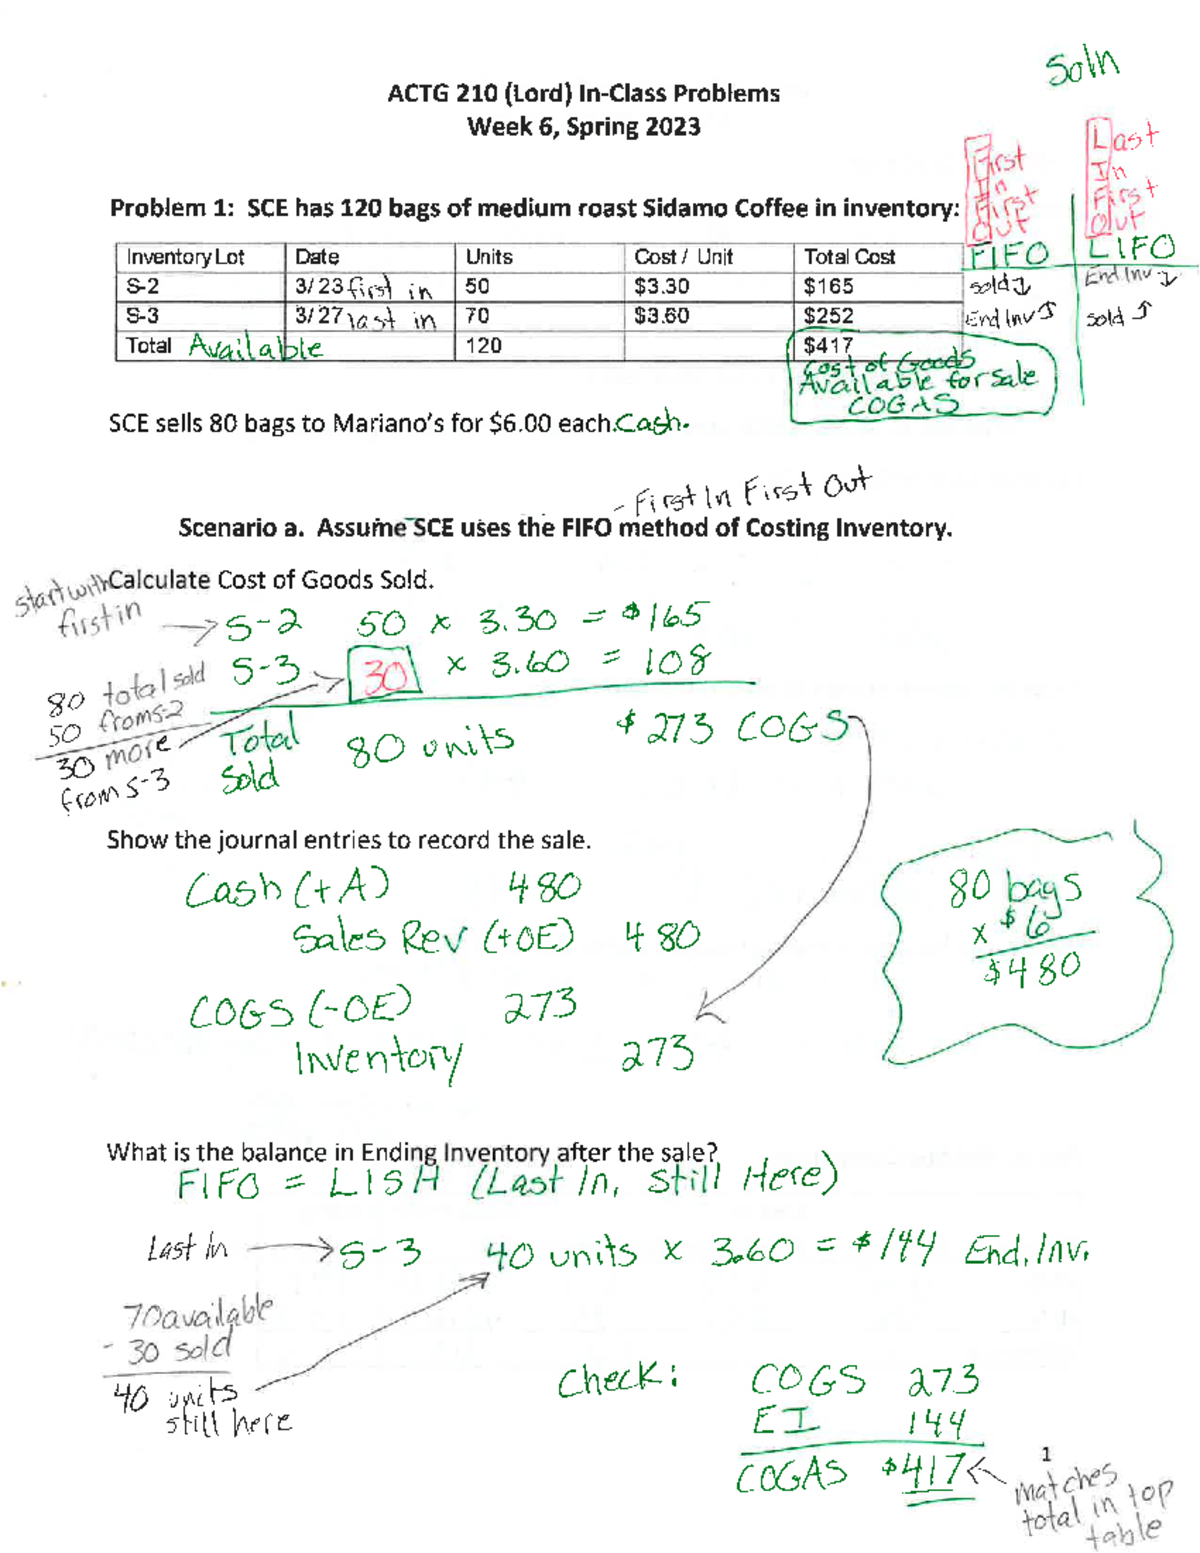 Soln
ACTG 210 (Lord) In-Class Problems
Week 6, Spring 2023
First
In
First
Out
FIFO
sold ↓
End Inv ↑
Last
In
First
Out
LIFO
End Inv ↓
sold ↑
Problem 1: SCE has 120 bags of medium roast Sidamo Coffee in inventory:
Inventory Lot Date Units Cost / Unit Total Cost
S-2 3/23 first in 50 $3.30 $165
S-3 3/27 last in 70 $3.60 $252
Total Available 120 $417
Cost of Goods
Available for sale
COGAS
SCE sells 80 bags to Mariano's for $6.00 each. Cash.
- First In First Out
Scenario a. Assume SCE uses the FIFO method of Costing Inventory.
Calculate Cost of Goods Sold.
start with
first in
S-2 50 x 3.30 = $165
S-3 30 x 3.60 = 108
80 total sold
50 from S-2
30 more
from S-3
Total
Sold
80 units
$273 COGS
Show the journal entries to record the sale.
Cash (+A) 480
Sales Rev (+OE) 480
COGS (-OE) 273
Inventory 273
80 bags
x $6
$480
What is the balance in Ending Inventory after the sale?
FIFO = LISH (Last In, Still Here)
Last in → S-3 40 units x 3.60 = $144 End. Inv.
70 available
- 30 sold
40 units
still here
Check: COGS 273
EI 144
COGAS $417
1
matches
total in top
table